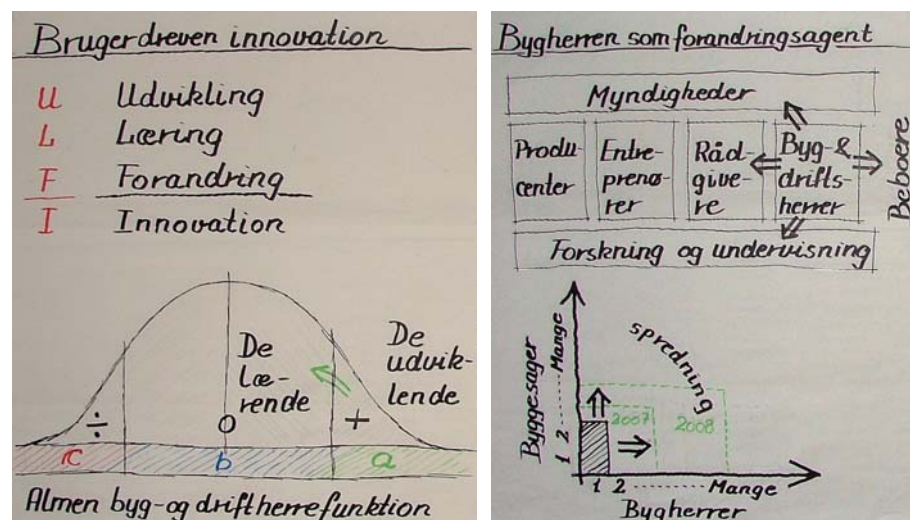 Brugerdreven innovation
U Udvikling
L Læring
F Forandring
I Innovation
De
læ-
rende
De
udvik-
lende
÷ 0 +
c b a
Almen byg-og driftherrefunktion
Bygherren som forandringsagent
Myndigheder
Produ-
center
Entre-
prenø-
rer
Råd-
give-
re
Byg-&
drifts-
herrer
Beboere
Forskning og undervisning
Byggesager
1 2 ...... Mange
spredning
2007 2008
1 2 ........... Mange
Bygherrer